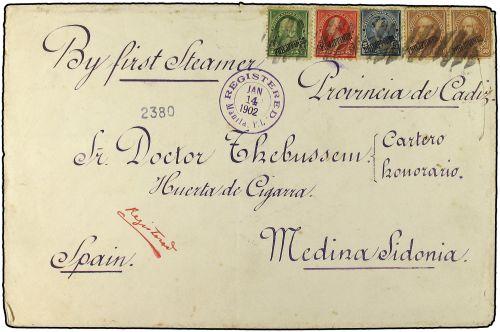 By first Steamer
REGISTERED
JAN
14
1902
Manila, P.I.
Provincia de Cadiz
2380
Sr. Doctor Thebussem
Cartero
honorario.
Huerta de Cigarra.
Registered
Spain.
Medina Sidonia.